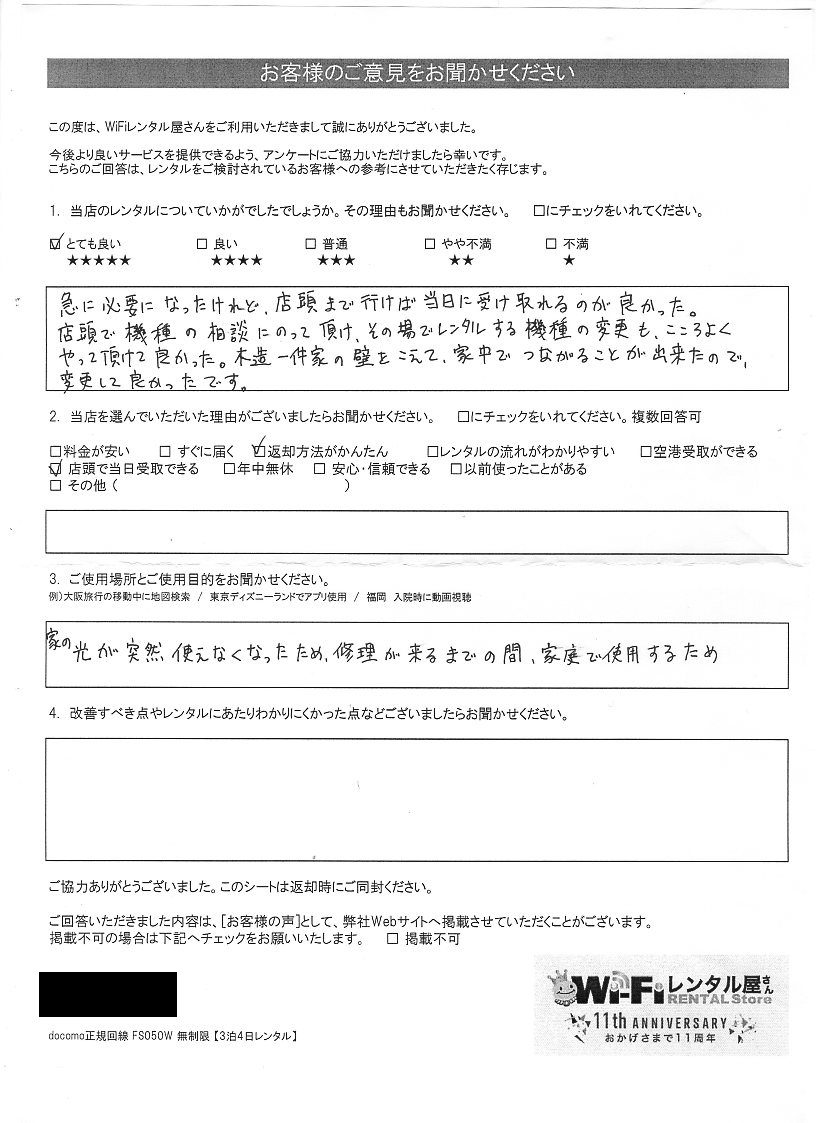 お客様のご意見をお聞かせください
この度は、WiFiレンタル屋さんをご利用いただきまして誠にありがとうございました。
今後より良いサービスを提供できるよう、アンケートにご協力いただけましたら幸いです。
こちらのご回答は、レンタルをご検討されているお客様への参考にさせていただきたく存じます。
1. 当店のレンタルについていかがでしたでしょうか。その理由もお聞かせください。 □にチェックをいれてください。
☑ とても良い □ 良い □ 普通 □ やや不満 □ 不満
★★★★★ ★★★★ ★★★ ★★ ★
急に必要になったけれど、店頭まで行けば当日に受け取れるのが良かった。
店頭で機種の相談にのって頂け、その場でレンタルする機種の変更も、こころよく
やって頂けて良かった。木造一件家の壁をこえて、家中でつながることが出来たので、
変更して良かったです。
2. 当店を選んでいただいた理由がございましたらお聞かせください。 □にチェックをいれてください。複数回答可
□料金が安い □ すぐに届く ☑返却方法がかんたん □レンタルの流れがわかりやすい □空港受取ができる
☑ 店頭で当日受取できる □年中無休 □ 安心・信頼できる □以前使ったことがある
□ その他 ( )
3. ご使用場所とご使用目的をお聞かせください。
例)大阪旅行の移動中に地図検索 / 東京ディズニーランドでアプリ使用 / 福岡 入院時に動画視聴
家の光が突然使えなくなったため、修理が来るまでの間、家庭で使用するため
4. 改善すべき点やレンタルにあたりわかりにくかった点などございましたらお聞かせください。
ご協力ありがとうございました。このシートは返却時にご同封ください。
ご回答いただきました内容は、[お客様の声]として、弊社Webサイトへ掲載させていただくことがございます。
掲載不可の場合は下記へチェックをお願いいたします。 □ 掲載不可
Wi-Fiレンタル屋さん
RENTAL Store
11th ANNIVERSARY
おかげさまで11周年
docomo正規回線 FS050W 無制限【3泊4日レンタル】